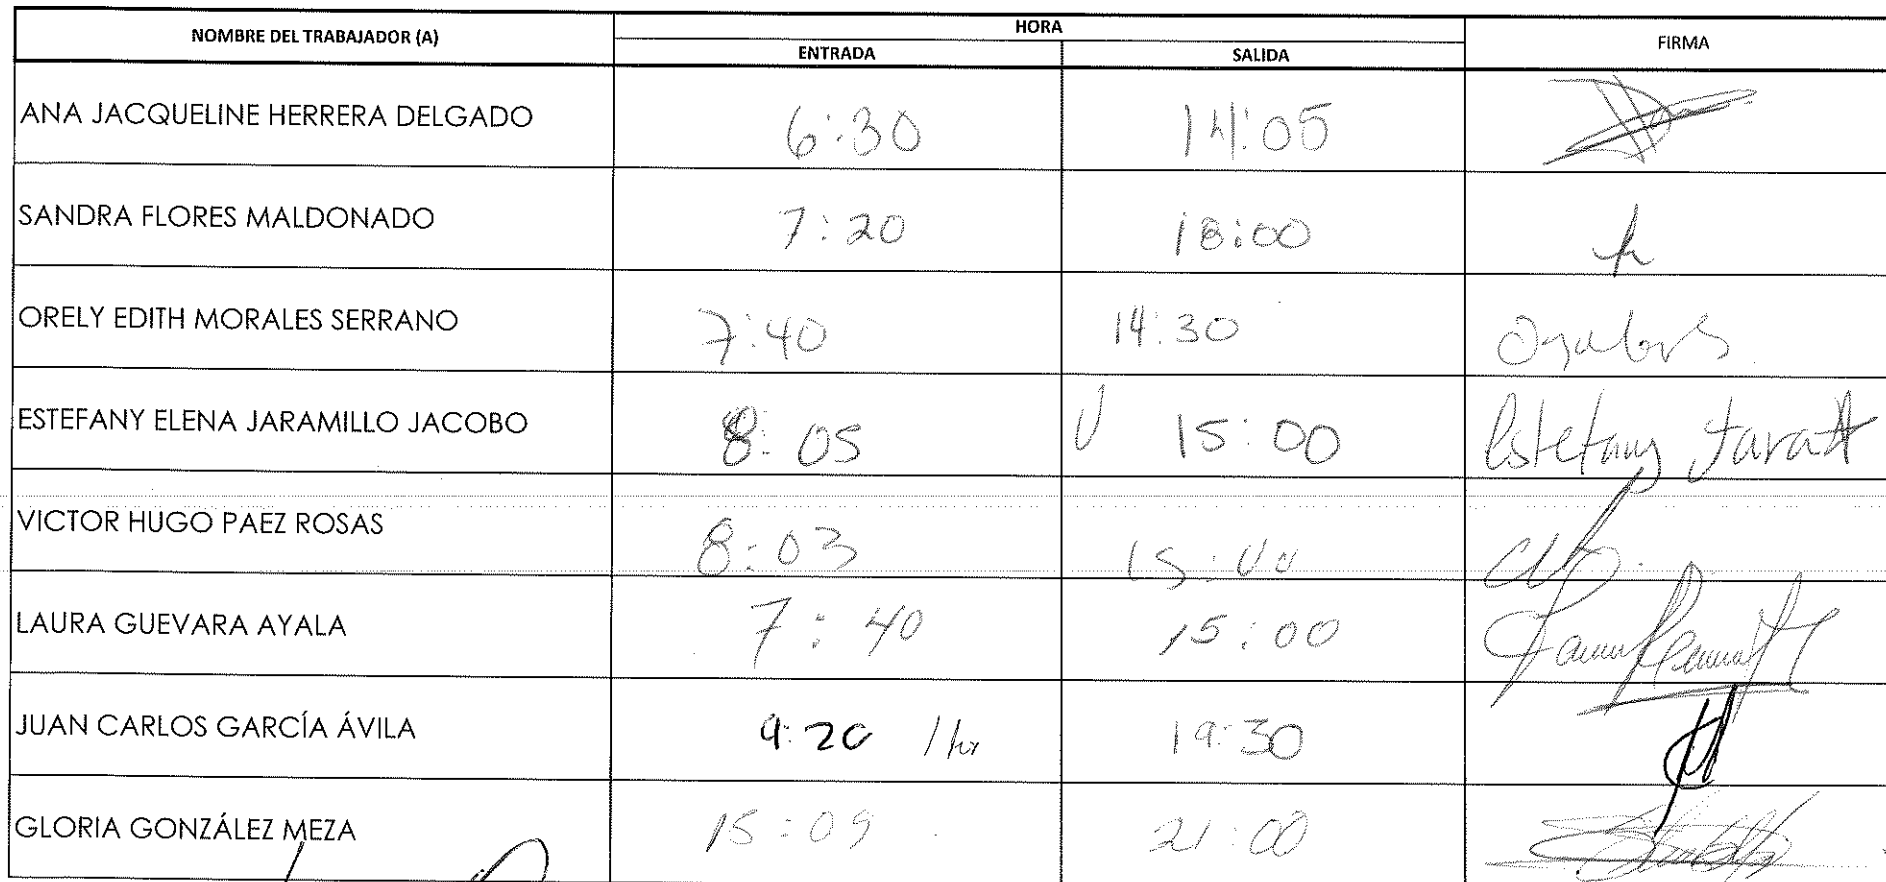 NOMBRE DEL TRABAJADOR (A) HORA FIRMA
ENTRADA SALIDA
ANA JACQUELINE HERRERA DELGADO 6:30 14:05
SANDRA FLORES MALDONADO 7:20 18:00
ORELY EDITH MORALES SERRANO 7:40 14:30
ESTEFANY ELENA JARAMILLO JACOBO 8:05 15:00 Estefany
VICTOR HUGO PAEZ ROSAS 8:03 15:00
LAURA GUEVARA AYALA 7:40 15:00
JUAN CARLOS GARCÍA ÁVILA 9:20 1 hr 19:30
GLORIA GONZÁLEZ MEZA 15:09 21:00